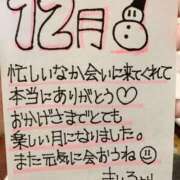 12月
忙しいなか会いに来てくれて
本当にありがとう♡
おかげさまでとても
楽しい月になりました。
また元気に会おうね☺